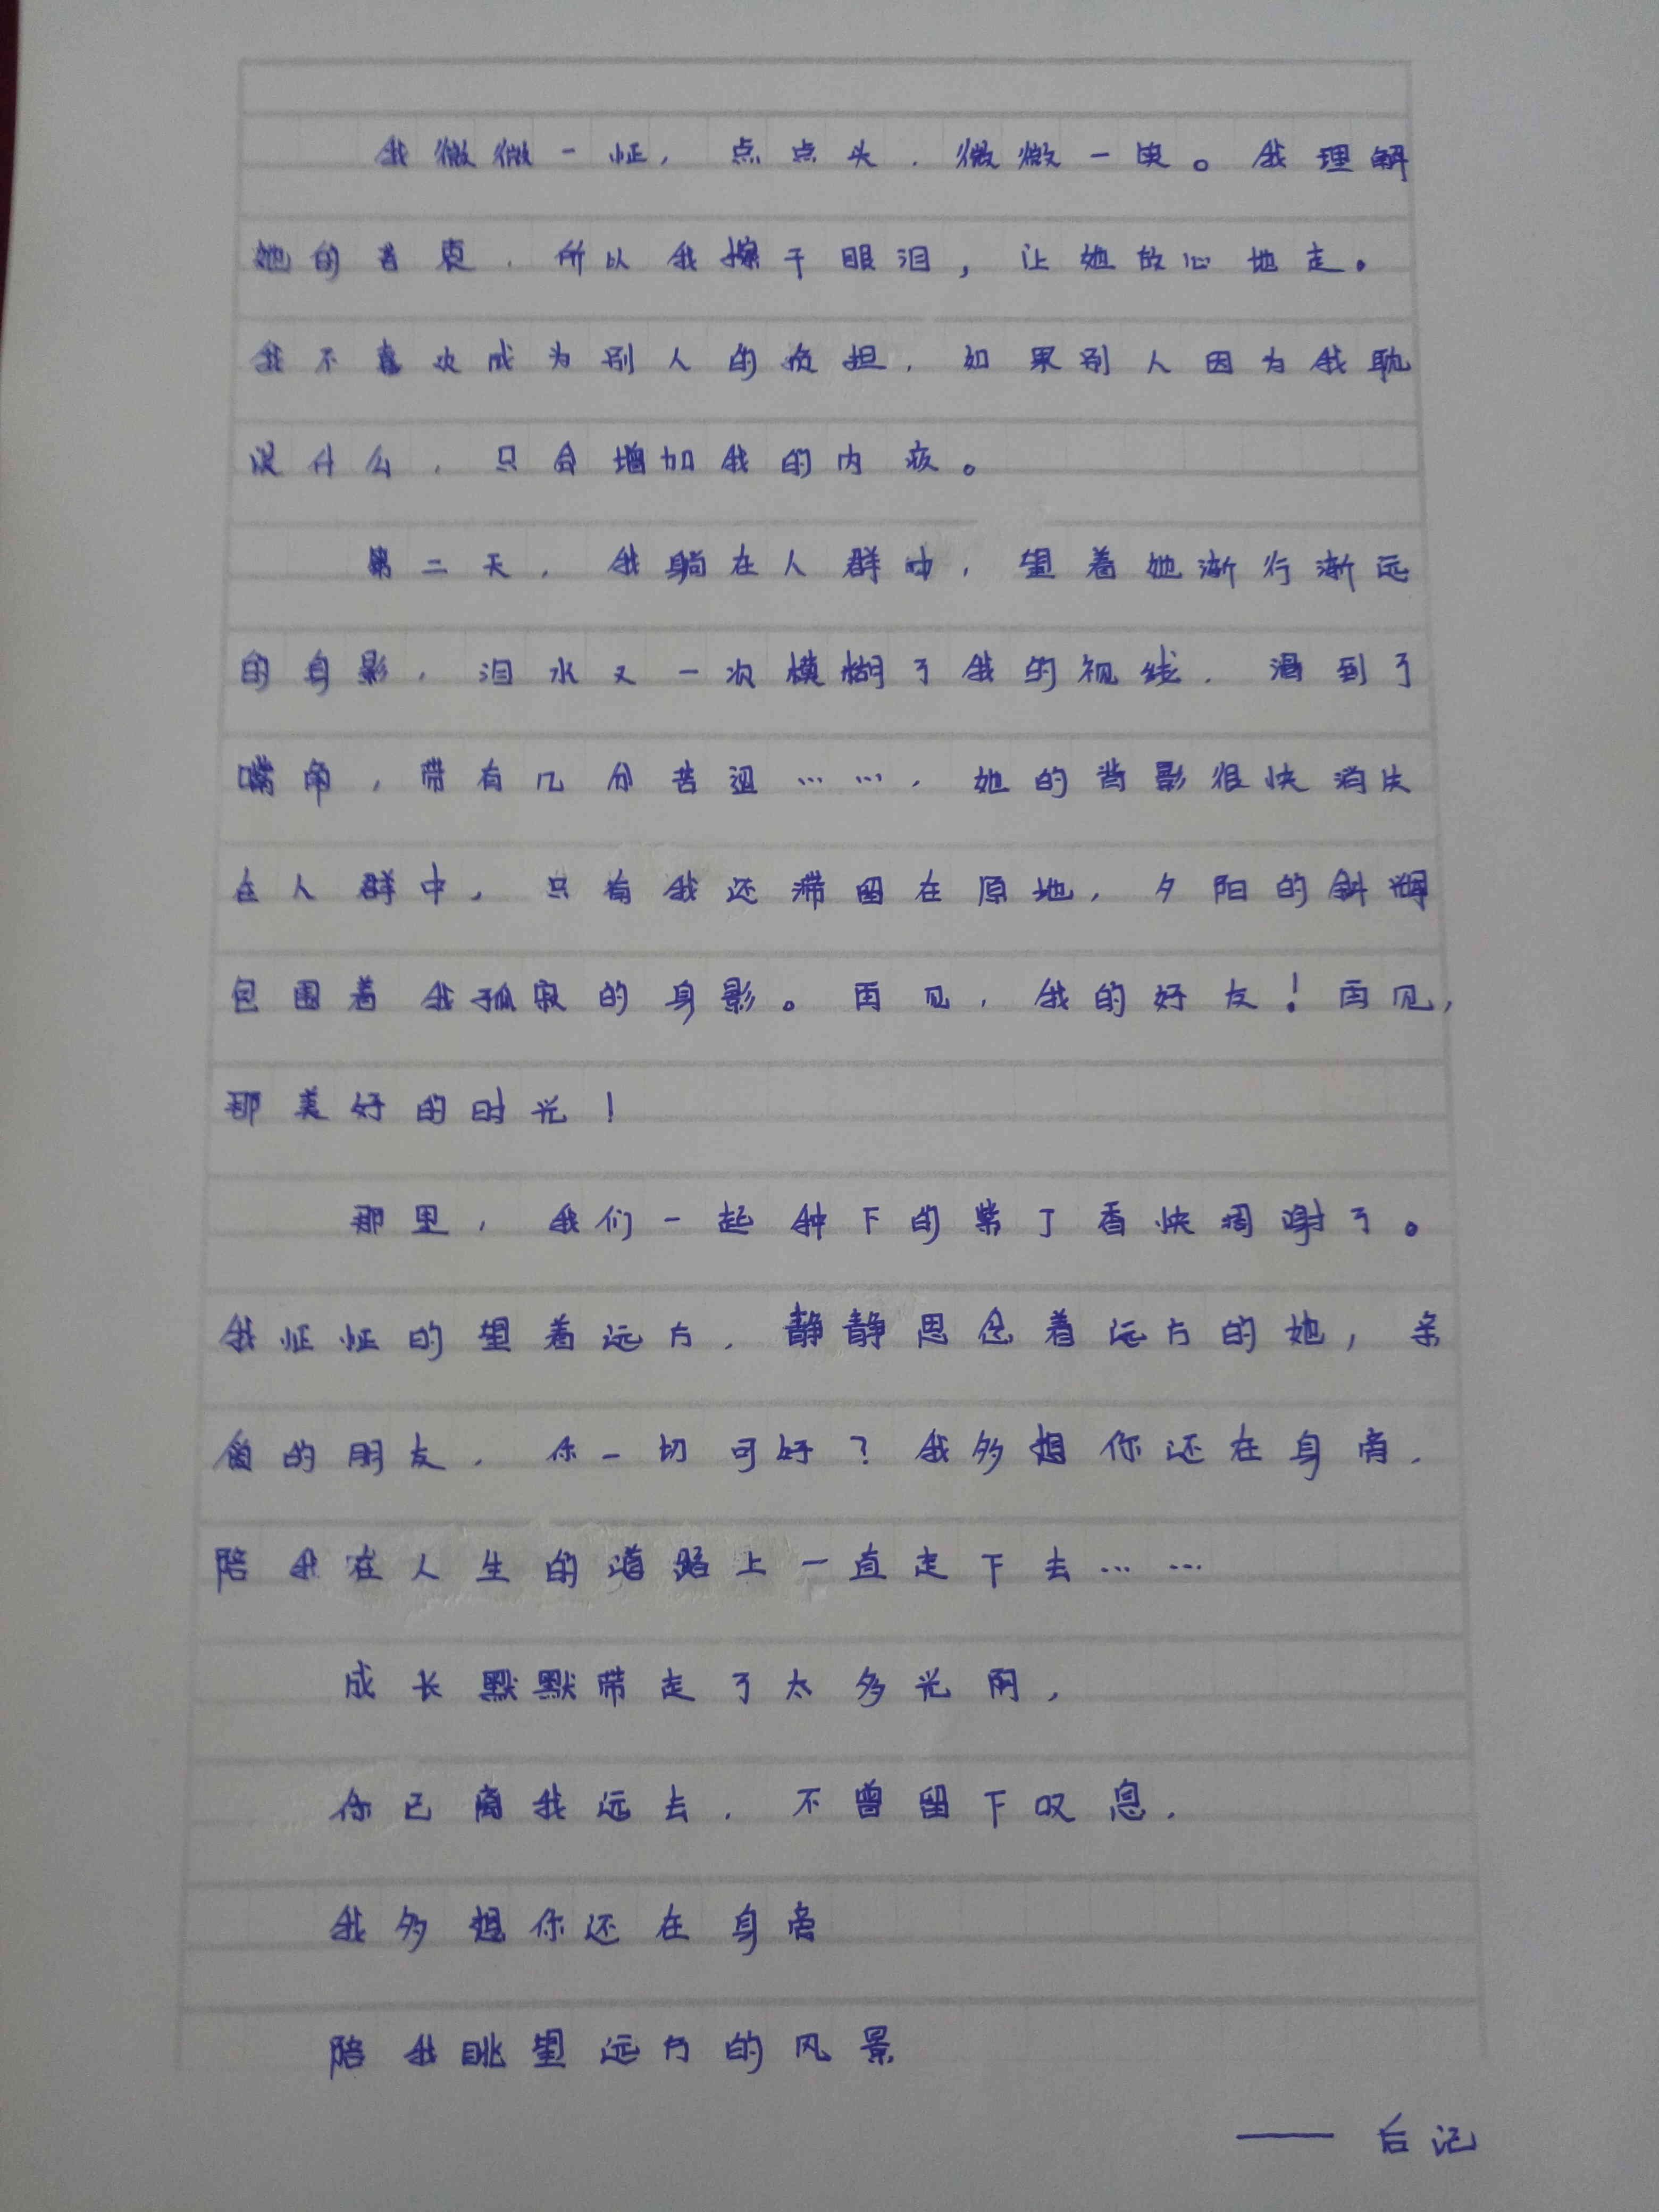 我微微一怔，点点头，微微一笑。我理解
她的苦衷，所以我擦干眼泪，让她放心地走。
我不喜欢成为别人的负担，如果别人因为我耽
误什么，只会增加我的内疚。
第二天，我躺在人群中，望着她渐行渐远
的身影，泪水又一次模糊了我的视线，滑到了
嘴角，带有几分苦涩……，她的背影很快消失
在人群中，只有我还滞留在原地，夕阳的斜辉
包围着我孤寂的身影。再见，我的好友！再见，
那美好的时光！
那里，我们一起种下的紫丁香快凋谢了。
我怔怔的望着远方，静静思念着远方的她，亲
爱的朋友，你一切可好？我多想你还在身旁，
陪我在人生的道路上一直走下去……
成长默默带走了太多光阴，
你已离我远去，不曾留下叹息，
我多想你还在身旁
陪我眺望远方的风景
——后记